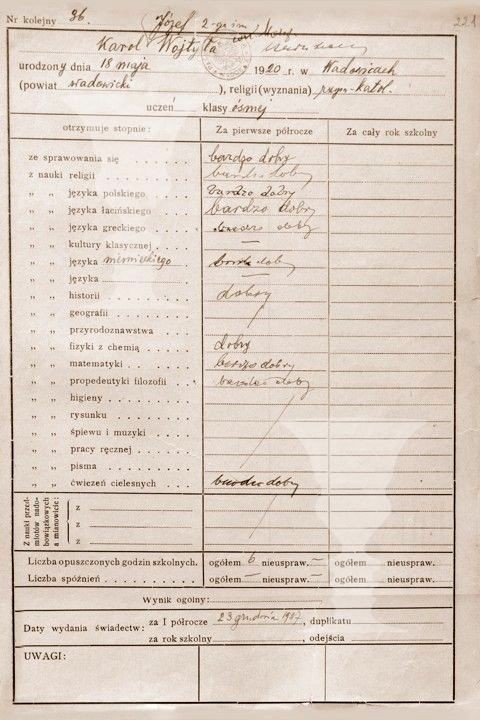 Nr kolejny 36. Józef 2-ga im. 221
Karol Wojtyła
urodzony dnia 18 maja 1920 r. w Wadowicach
(powiat wadowicki ), religii (wyznania) rzym-katol.
uczeń klasy ósmej
otrzymuje stopnie: Za pierwsze półrocze Za cały rok szkolny
ze sprawowania się bardzo dobry
z nauki religii bardzo dobry
„ „ języka polskiego bardzo dobry
„ „ języka łacińskiego bardzo dobry
„ „ języka greckiego bardzo dobry
„ „ kultury klasycznej —
„ „ języka niemieckiego bardzo dobry
„ „ języka —
„ „ historii dobry
„ „ geografii
„ „ przyrodoznawstwa
„ „ fizyki z chemią dobry
„ „ matematyki bardzo dobry
„ „ propedeutyki filozofii bardzo dobry
„ „ higieny
„ „ rysunku
„ „ śpiewu i muzyki
„ „ pracy ręcznej
„ „ pisma
„ „ ćwiczeń cielesnych bardzo dobry
Z nauki przed-
miotów nado-
bowiązkowych
a mianowicie:
z
z
z
Liczba opuszczonych godzin szkolnych. ogółem 6 nieuspraw. — ogółem nieuspraw.
Liczba spóźnień ogółem — nieuspraw. — ogółem nieuspraw.
Wynik ogólny:
Daty wydania świadectw: za I półrocze 23 grudnia 1937, duplikatu
za rok szkolny , odejścia
UWAGI: